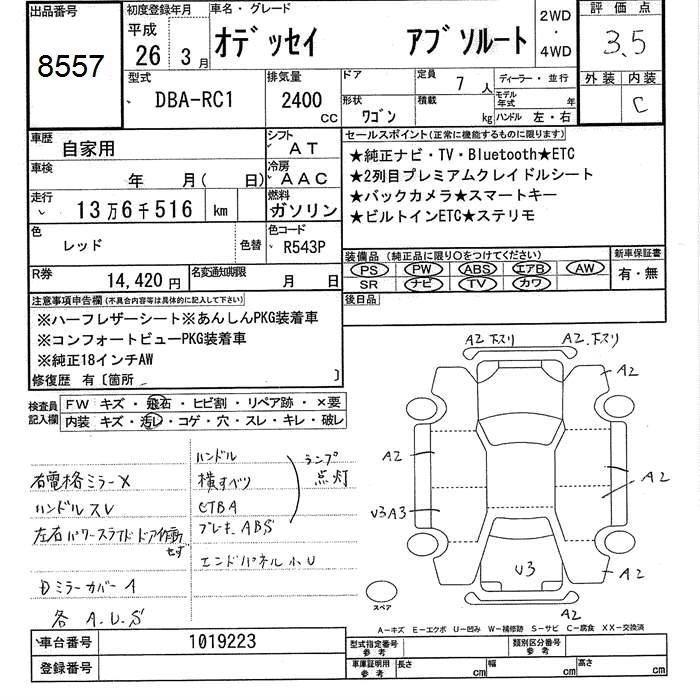 出品番号
8557
初度登録年月
平成
26 3月
車名・グレード
オデッセイ アブソルート
2WD
・
4WD
評価点
3.5
外装 内装
C
型式
DBA-RC1
排気量
2400
cc
ドア
形状
ワゴン
定員
7 人
積載
kg
ディーラー・並行
モデル年式 年
ハンドル 左・右
車歴
自家用
シフト
AT
車検
年 月( 日)
冷房
AAC
走行
13万6千516 km
燃料
ガソリン
色
レッド
色替
色コード
R543P
R券
14,420円
名変通知期限
月 日
セールスポイント(正常に機能するものに限ります)
★純正ナビ・TV・Bluetooth★ETC
★2列目プレミアムクレイドルシート
★バックカメラ★スマートキー
★ビルトインETC★ステリモ
装備品(純正品に限り〇をつけてください)
PS PW ABS エアB AW
SR ナビ TV カワ
新車保証書
有・無
後日品
注意事項申告欄(不具合内容等は具体的に記入して下さい)
※ハーフレザーシート※あんしんPKG装着車
※コンフォートビューPKG装着車
※純正18インチAW
修復歴 有〔箇所 〕
検査員記入欄
FW キズ・飛石・ヒビ割・リペア跡・×要
内装 キズ・汚レ・コゲ・穴・スレ・キレ・破レ
右電格ミラーX
ハンドルスレ
左右パワースライドドア作動せず
Dミラーカバー1
各A.U.S
ハンドル
横すべり
CTBA
ブレーキ、ABS
ランプ点灯
エンドパネル小U
A2 下スリ
A2.下スリ
A2
A2
A2
V3A3
V3
A2
A2
スペア
A-キズ E-エクボ U-凹み W-補修跡 S-サビ C-腐食 XX-交換済
車台番号
1019223
登録番号
型式指定番号
参考
類別区分番号
参考
車庫証明用
参考
長さ cm
幅 cm
高さ cm